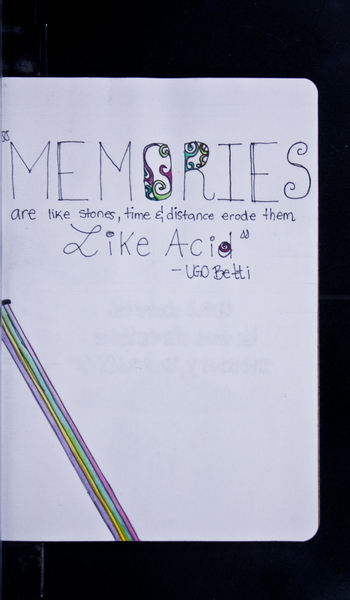 "MEMORIES
are like stones, time & distance erode them
Like Acid"
- UGO Betti